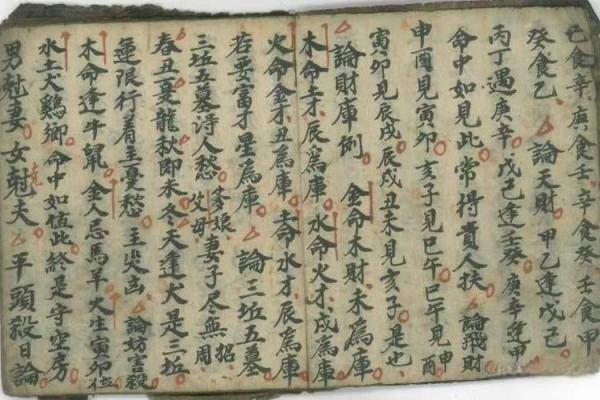 己食辛 庚食壬 辛食癸 壬食甲
癸食乙 論天財 甲乙逢戊己
丙丁遇庚辛 戊己逢壬癸 庚辛逢甲
命中如見此 常得貴人扶 論飛財
申酉見寅卯 亥子見巳午 巳午見申酉
寅卯見辰戌 辰戌丑未見亥子是也
論財庫例 金命木財未為庫
木命土才辰為庫 水命火才戌為庫
火命金才丑為庫 土命水才辰為庫
若要富才星為庫 論三坵五墓
三坵五墓詩人愁 爹娘父母妻子尽無招周
春丑夏龍秋即未 冬天逢犬是三坵
運限行着主憂愁 主尖凶 論妨害殺
木命逢牛鼠 金人忌馬羊 火生寅卯位
水土犬鷄鄉 命中如值此 終是守空房
男尅妻女尅夫 平頭殺日論